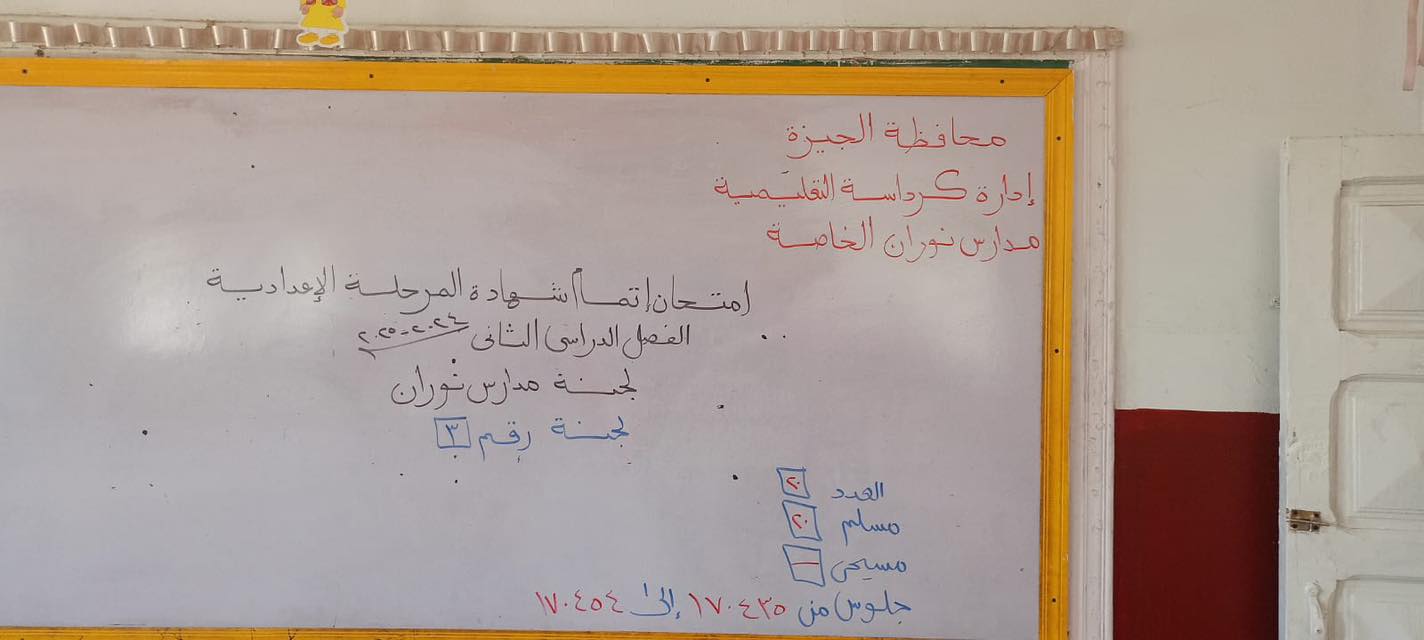 محافظة الجيزة
إدارة كرداسة التعليمية
مدارس نوران الخاصة
إمتحان إتمام شهادة المرحلة الإعدادية
الفصل الدراسى الثانى ٢٠٢٤-٢٠٢٥
لجنة مدارس نوران
لجنة رقم ٣
العدد ٢٠
مسلم ٢٠
مسيحى —
جلوس من ١٧٠٤٣٥ إلى ١٧٠٤٥٤